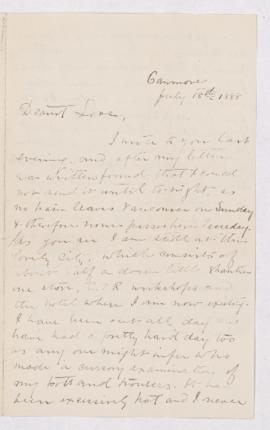 Canmore
July 18th 1888
Dearest Love,
I wrote to you last
evening and after my letter
was written found that I could
not send it until to-night as
no train leaves Vancouver on Sunday
& therefore none passes here Tuesday.
As you see I am still at this
lovely City, which consists of
about half a dozen little shanties
one store, C.P.R workshops and
the hotel where I am now
I have been out all day and
have had a pretty hard day too
as any one might infer who
made a cursory examination of
my boots and trousers. It has
been excessively hot and I never